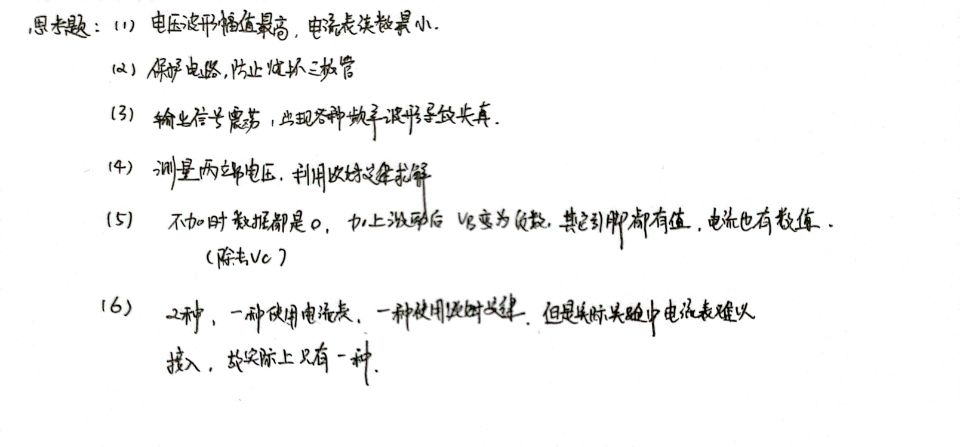 思考题：(1) 电压波形幅值最高，电流表读数最小.
(2) 保护电路，防止烧坏三极管
(3) 输出信号震荡，出现各种频率波形导致失真.
(4) 测量两端电压，利用欧姆定律求解
(5) 不加时数据都是0，加上激励后 VB变为负数，其它引脚都有值，电流也有数值.
(除去Vc)
(6) 2种，一种使用电流表，一种使用欧姆定律，但是实际实验中电流表难以
接入，故实际上只有一种.